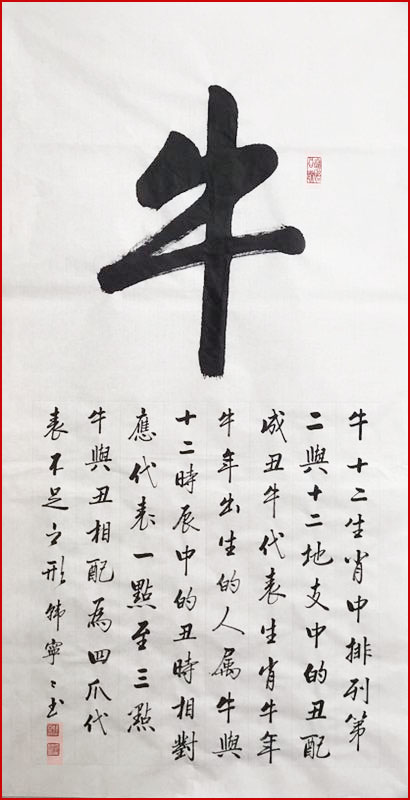 牛
牛十二生肖中排列第
二與十二地支中的丑配
成丑牛代表生肖牛年
牛年出生的人属牛與
十二時辰中的丑時相對
應代表一點至三點
牛與丑相配為四爪代
表不足之形韩寧〻